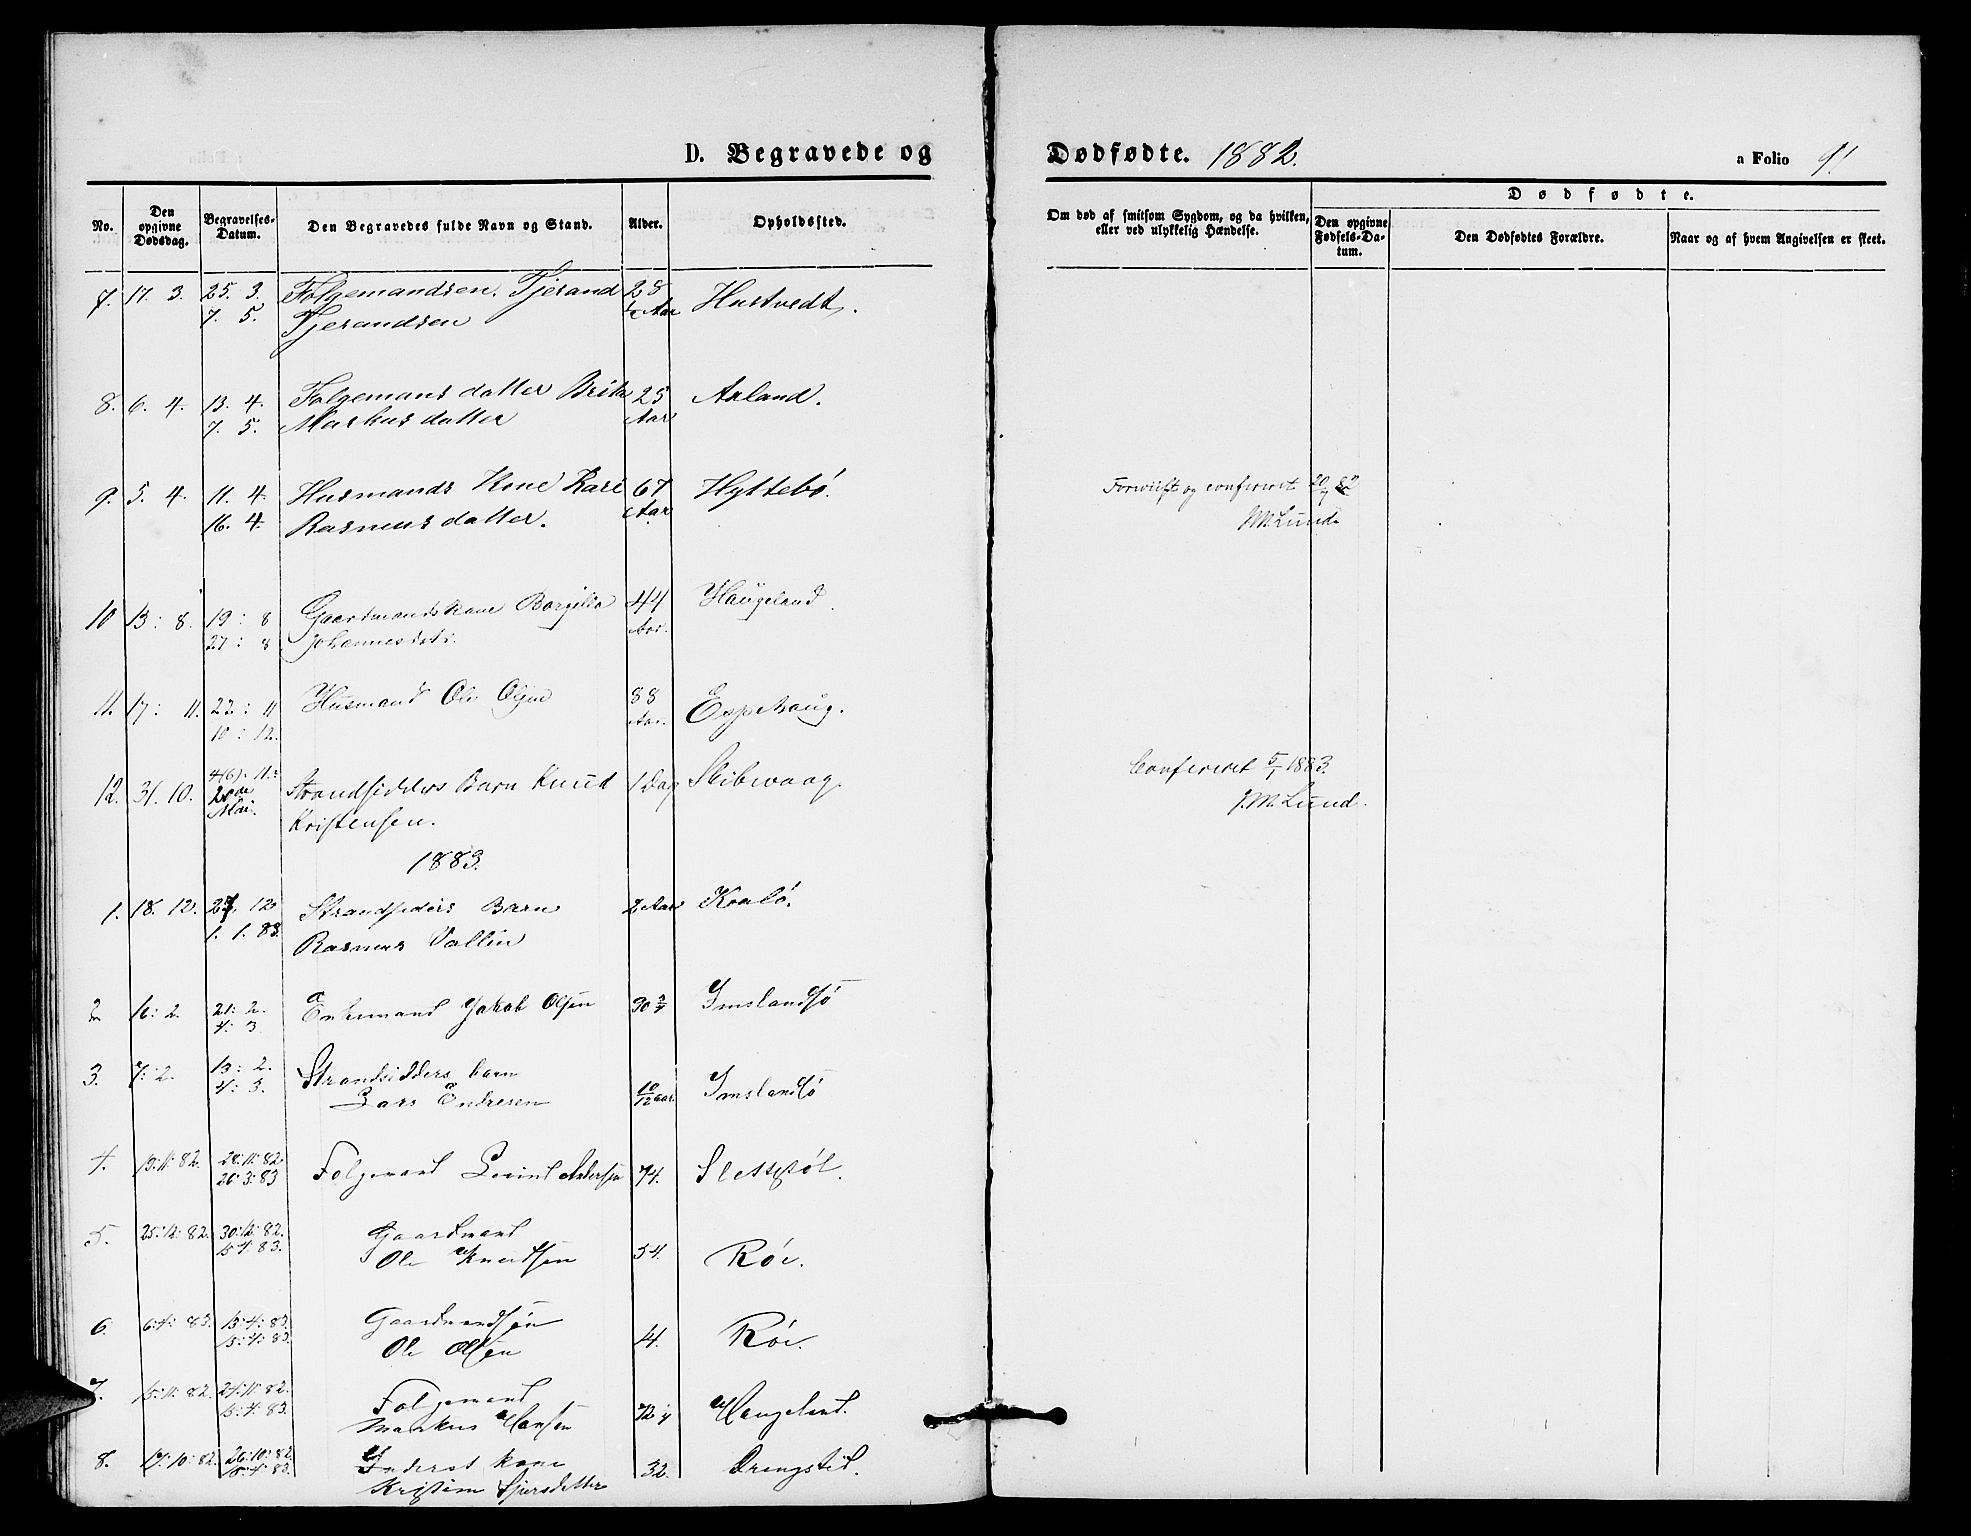 D. Begravede og Dødfødte. 1882.
a Folio 91
No.
Den opgivne Dødsdag.
Begravelses-Datum.
Den Begravedes fulde Navn og Stand.
Alder.
Opholdssted.
Om død af smitsom Sygdom, og da hvilken, eller ved ulykkelig Hændelse.
Dødfødte.
Den opgivne Fødsels-Datum.
Den Dødfødtes Forældre.
Naar og af hvem Angivelsen er skeet.
7. 17. 3. 25. 3. Folgemandsen. Tjerand 28 Hustvedt.
7. 5. Tjerandsen Aar
8. 6. 4. 13. 4. Folgemans datter Brita 25 Aaland.
7. 5. Markus datter Aar
9. 5. 4. 11. 4. Husmands Kone Kari 67 Hyttebø.
16. 4. Rasmus datter. Aar
Conferert 20/7 82
J.M. Lund.
10 13: 8. 19: 8 Gaardmands kone Borgilla 44 Haugeland.
27: 8 Johannesdatr. Aar.
11. 17: 11. 22: 11 Husmand Ole Olsen 88 Espehaug.
10: 12. Aar.
12. 31. 10. 4(6). 11. Strandsidders Barn Knud 1 Dag Skibevaag.
Mai. Kristensen.
Confereret 5/1 1883.
J.M. Lund.
1883.
1. 18. 12. 12 Strandsiders Barn 2 Aar Kaalø.
1. 1. 83. Rasmus Vallin
2 16: 2. 21: 2. Enkemand Jakob Olsen 90 3/4 Imslandsjø
4: 3
3. 7: 2. 13: 2. Strandsidders barn 10/12 aar. Imslandsjø
4: 3. Lars Endresen
4. 19: 11: 82. 28: 11: 82 Folgemand Andersen 74. Slettstøl.
26: 3: 83
5. 25: 12: 82. 30: 12: 82. Gaardmand 54. Røe.
15: 4: 83. Ole Knudsen
6. 6: 4: 83. 13: 4: 83. Gaardmandsøn 4. Røe.
15: 4: 83. Ole Olsen
7. 15: 11: 82. 21: 11: 82. Folgemand 72 Haugeland.
15: 4: 83. Markus Hansen
8. 17: 10: 82. 26: 10: 82. Inderst kone 32. Drengstil.
15: 4: 83. Kristine Sjursdatter